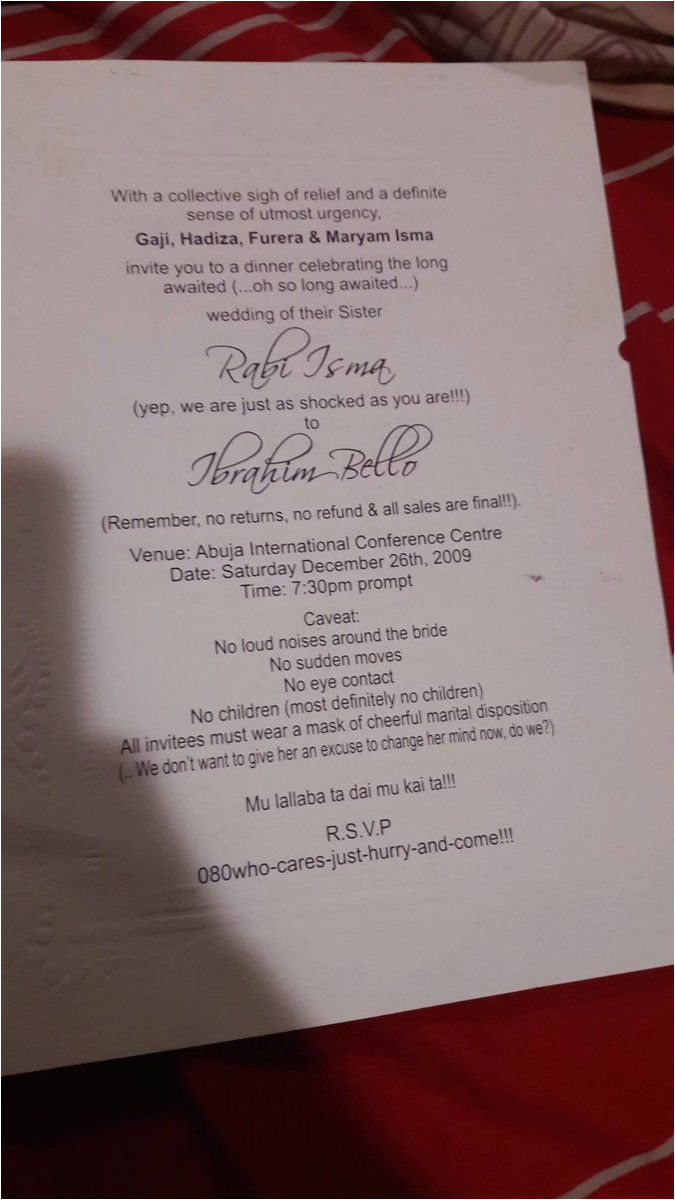 With a collective sigh of relief and a definite
sense of utmost urgency,
Gaji, Hadiza, Furera & Maryam Isma
invite you to a dinner celebrating the long
awaited (...oh so long awaited...)
wedding of their Sister
Rabi Isma
(yep, we are just as shocked as you are!!!)
to
Ibrahim Bello
(Remember, no returns, no refund & all sales are final!!).
Venue: Abuja International Conference Centre
Date: Saturday December 26th, 2009
Time: 7:30pm prompt
Caveat:
No loud noises around the bride
No sudden moves
No eye contact
No children (most definitely no children)
All invitees must wear a mask of cheerful marital disposition
(.. We don't want to give her an excuse to change her mind now, do we?)
Mu lallaba ta dai mu kai ta!!!
R.S.V.P
080who-cares-just-hurry-and-come!!!